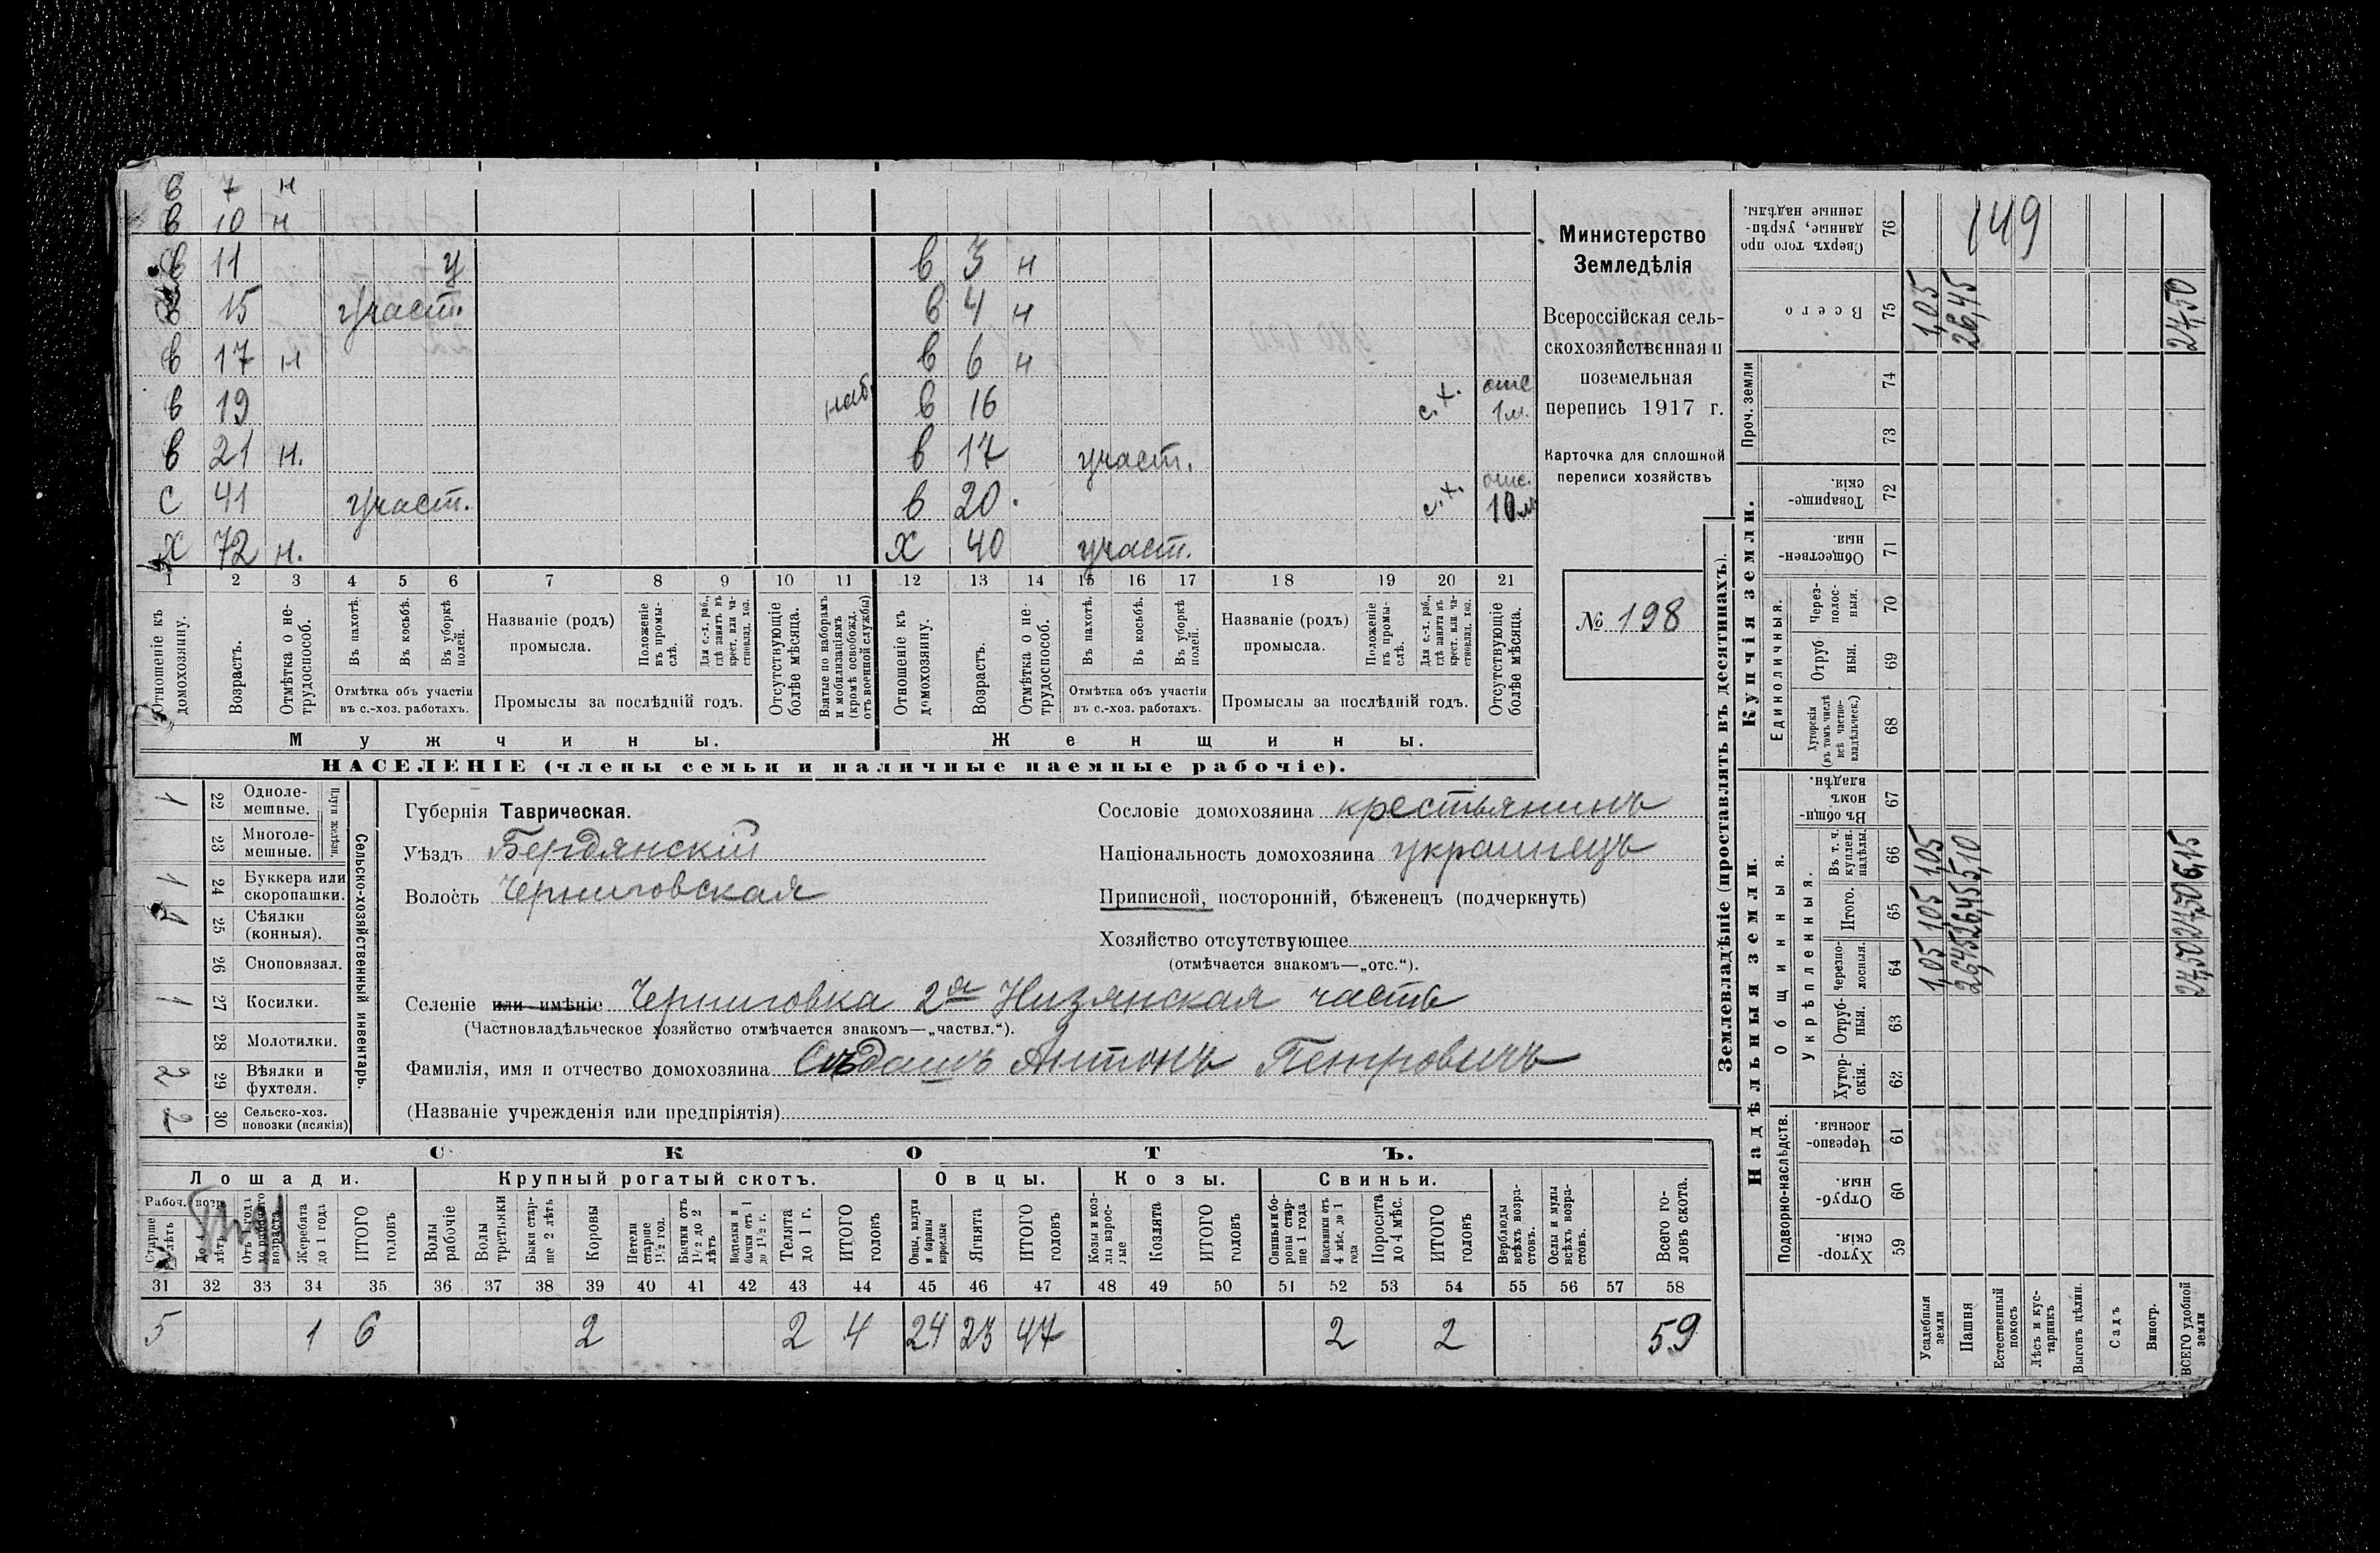 в 7 н
в 10 н
в 11 у
в 15 участ.
в 17 н
в 19 наб.
в 21 н.
с 41 участ.
х 72 н.
в 3 н
в 4 н
в 6 н
в 16 с.х. отс 1м.
в 17 участ.
в 20. с.х. отс. 10м
х 40 участ.
1 2 3 4 5 6 7 8 9 10 11 12 13 14 15 16 17 18 19 20 21
Отношеніе къ домохозяину.
Возрастъ.
Отмѣтка о не-
трудоспособ.
Въ пахотѣ.
Въ косьбѣ.
Въ уборкѣ
полей.
Отмѣтка объ участіи
въ с.-хоз. работахъ.
Названіе (родъ)
промысла.
Положеніе
въ промы-
слѣ.
Для с.-х. раб.,
гдѣ занятъ въ
крест. или ча-
стновлад. хоз.
Промыслы за послѣдній годъ.
Отсутствующіе
болѣе мѣсяца.
Взятые по наборамъ
и мобилизаціямъ
(кромѣ освобожд.
отъ военной службы)
Отношеніе къ
домохозяину.
Возрастъ.
Отмѣтка о не-
трудоспособ.
Въ пахотѣ.
Въ косьбѣ.
Въ уборкѣ
полей.
Отмѣтка объ участіи
въ с.-хоз. работахъ.
Названіе (родъ)
промысла.
Положеніе
въ промы-
слѣ.
Для с.-х. раб.,
гдѣ занята въ
крест. или ча-
стновлад. хоз.
Промыслы за послѣдній годъ.
Отсутствующіе
болѣе мѣсяца.
Мужчины.
Женщины.
НАСЕЛЕНІЕ (члены семьи и наличные наемные рабочіе).
Министерство
Земледѣлія
Всероссійская сель-
скохозяйственная и
поземельная
перепись 1917 г.
Карточка для сплошной
переписи хозяйствъ
№ 198
1 22 Одноле-
мешные.
23 Многоле-
мешные.
Плуги желѣзн.
1 24 Буккера или
скоропашки.
1 25 Сѣялки
(конныя).
26 Сноповязал.
1 27 Косилки.
28 Молотилки.
2 29 Вѣялки и
фухтеля.
2 30 Сельско-хоз.
повозки (всякія)
Сельско-хозяйственный инвентарь.
Губернія Таврическая.
Уѣздъ Бердянскій
Волость Черниговская
Сословіе домохозяина крестьянинъ
Національность домохозяина украинецъ
Приписной, посторонній, бѣженецъ (подчеркнуть)
Хозяйство отсутствующее
(отмѣчается знакомъ—„отс.“).
Селеніе или имѣніе Черниговка 2я Низянская часть
(Частновладѣльческое хозяйство отмѣчается знакомъ—„частвл.“).
Фамилія, имя и отчество домохозяина Антонъ Петровичъ
(Названіе учрежденія или предпріятія)
СКОТЪ.
Лошади.
Крупный рогатый скотъ.
Овцы.
Козы.
Свиньи.
Рабоч. возр.
Старше
лѣтъ
До 4
лѣтъ
Отъ 1 года
до рабочаго
возраста
Жеребята
до 1 года
ИТОГО
головъ
Волы
рабочіе
Волы
третьяки
Быки стар-
ше 2 лѣтъ
Коровы
Нетели
старше
1½ год.
Бычки отъ
1½ до 2
лѣтъ
Подтелки и
бычки отъ 1
до 1½ г.
Телята
до 1 г.
ИТОГО
головъ
Овцы, валухи
и бараны
взрослые
Ягнята
ИТОГО
головъ
Козы и коз-
лы взрос-
лые
Козлята
ИТОГО
головъ
Свиньи и бо-
ровы стар-
ше 1 года
Подсвинки отъ
4 мѣс. до 1
года
Поросята
до 4 мѣс.
ИТОГО
головъ
Верблюды
всѣхъ возра-
стовъ.
Ослы и мулы
всѣхъ возра-
стовъ.
Всего го-
ловъ скота.
31 32 33 34 35 36 37 38 39 40 41 42 43 44 45 46 47 48 49 50 51 52 53 54 55 56 57 58
5 1 6 2 2 4 24 23 47 2 2 59
Землевладѣніе (проставлять въ десятинахъ).
Надѣльныя земли.
Купчія земли.
Проч. земли
Подворно-наслѣдств.
Общинныя.
Укрѣпленныя.
Единоличныя.
Хутор-
скія. 59
Отруб-
ныя. 60
Черезпо-
лосныя. 61
Хутор-
скія. 62
Отруб-
ныя. 63
Черезпо-
лосныя. 64
Итого. 65
Въ т. ч.
куплен.
надѣлы. 66
Въ общи-
номъ
владѣн. 67
Хуторскія
(въ томъ числѣ
всѣ частно-
владѣльческ.) 68
Отруб
ныя. 69
Через-
полос-
ныя. 70
Обществен-
ныя. 71
Товарище-
скія. 72
73
74
Всего 75
Сверхъ того про
данные, укрѣп-
ленные надѣлы. 76
Усадебныя
земли 1,05 1,05 1,05 1,05
Пашня 26,45 26,45 5,10 26,45 149
Естественный
покосъ
Лѣсъ и кус-
тарникъ
Выгонъ цѣлин.
Садъ
Виногр.
ВСЕГО удобной
земли 27,50 27,50 6,15 27,50